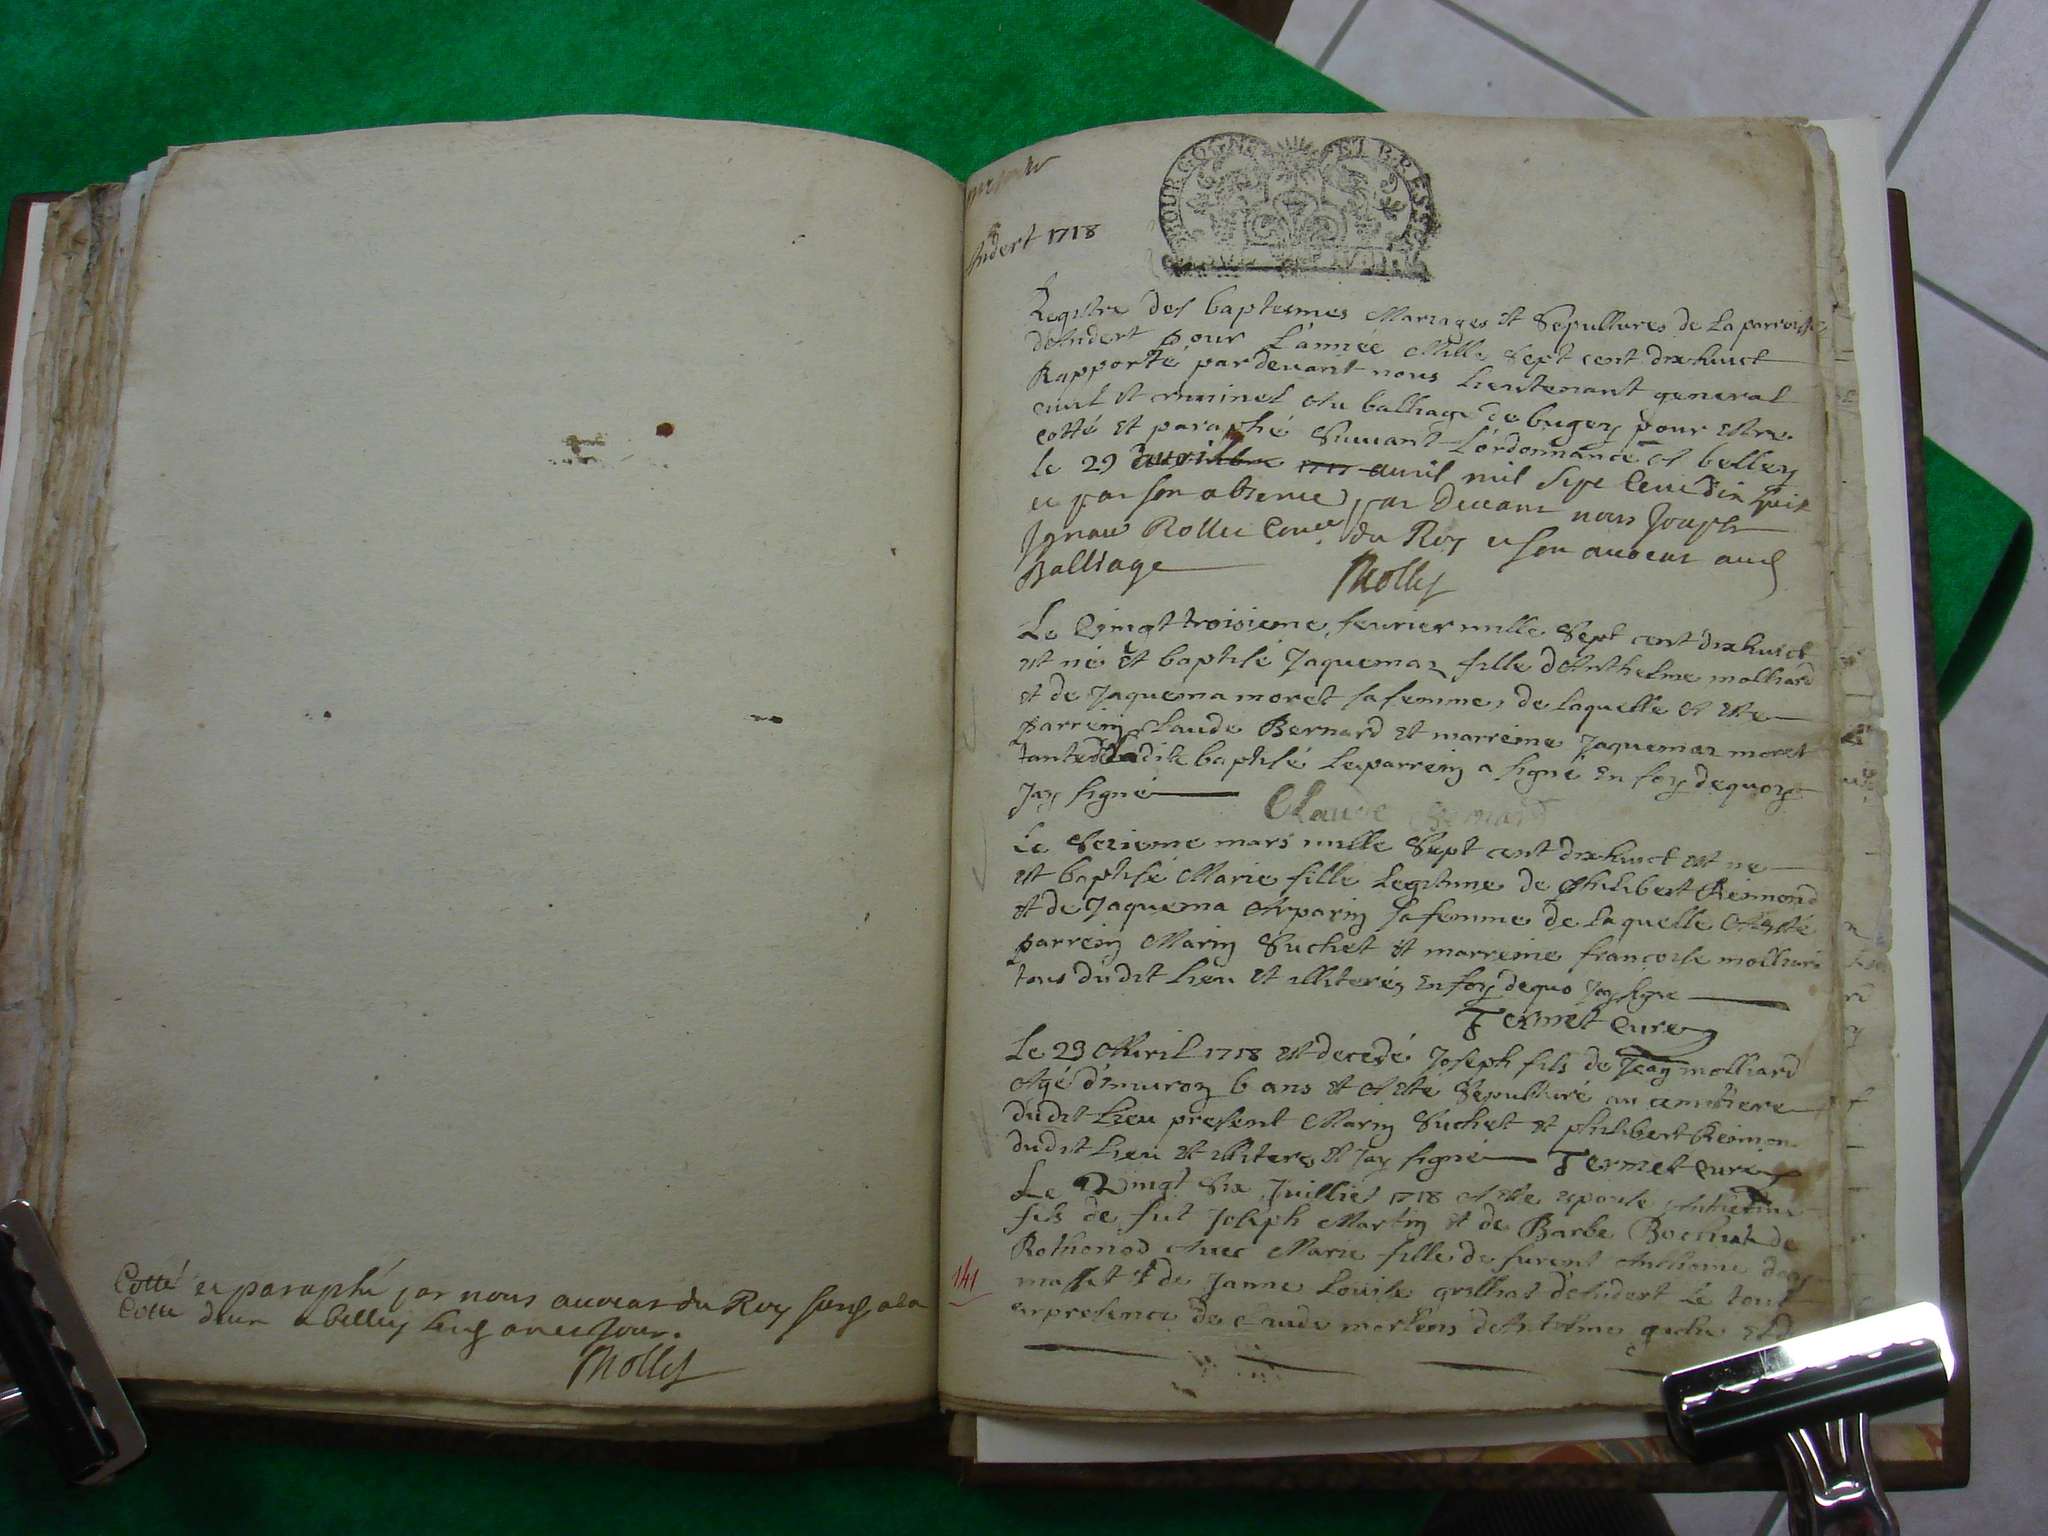 Cotté et paraphé par nous avocat du Roy
Rollet
Andert 1718
BOURGOGNE ET BRESSE
Registre des baptesmes Mariages et Sepultures de la parroisse
d'Andert pour l'année Mille Sept cent dixhuict
Rapporté pardevant nous Lieutenant general
civil et criminel Au balliage de bugey pour estre
cotté et paraphé Suivant L'ordonnance A belley
le 29 avril mil Sept Cent dix huit
et par son absence par Devant nous Joseph
Ignace Rollet Coner du Roy et son avocat aud
Balliage
Rollet
Le Vingt troisieme fevrier mille Sept cent dixhuict
est né et baptisé Jaquemaz fille d'Anthelme molliard
et de Jaquema moret sa femme, de laquelle A esté
parrein Claude Bernard et marreine Jaquemaz moret
tante de la dite baptisé Le parrein a signé En foy dequoy
Jay signé Claude Bernard
Le Sezieme mars mille Sept cent dixhuict est né
et baptisé Marie fille Legitime de Philibert Reimond
et de Jaquema Arparin sa femme de laquelle A esté
parrein Marin Suchet et marreine francoise
tous dudit Lieu et illiterés En foy dequo Jay signe
Termet curé
Le 23 Avril 1718 est decedé Joseph fils de Jean molliard
Agé d'environ 6 ans et A esté Sepulturé au cemitiere
dudit Lieu present Marin Suchet et philibert Reimon
dudit Lieu et illiterés et Jay signé Termet curé
Le Vingt Six Juilliet 1718 A esté epousé
fils de fut Joseph Martin et de Barbe Bochat de
Rothonod Avec Marie fille de furent Anthome
massit et de Janne Louise grilliat d'Andert Le tout
en presence de Claude
141